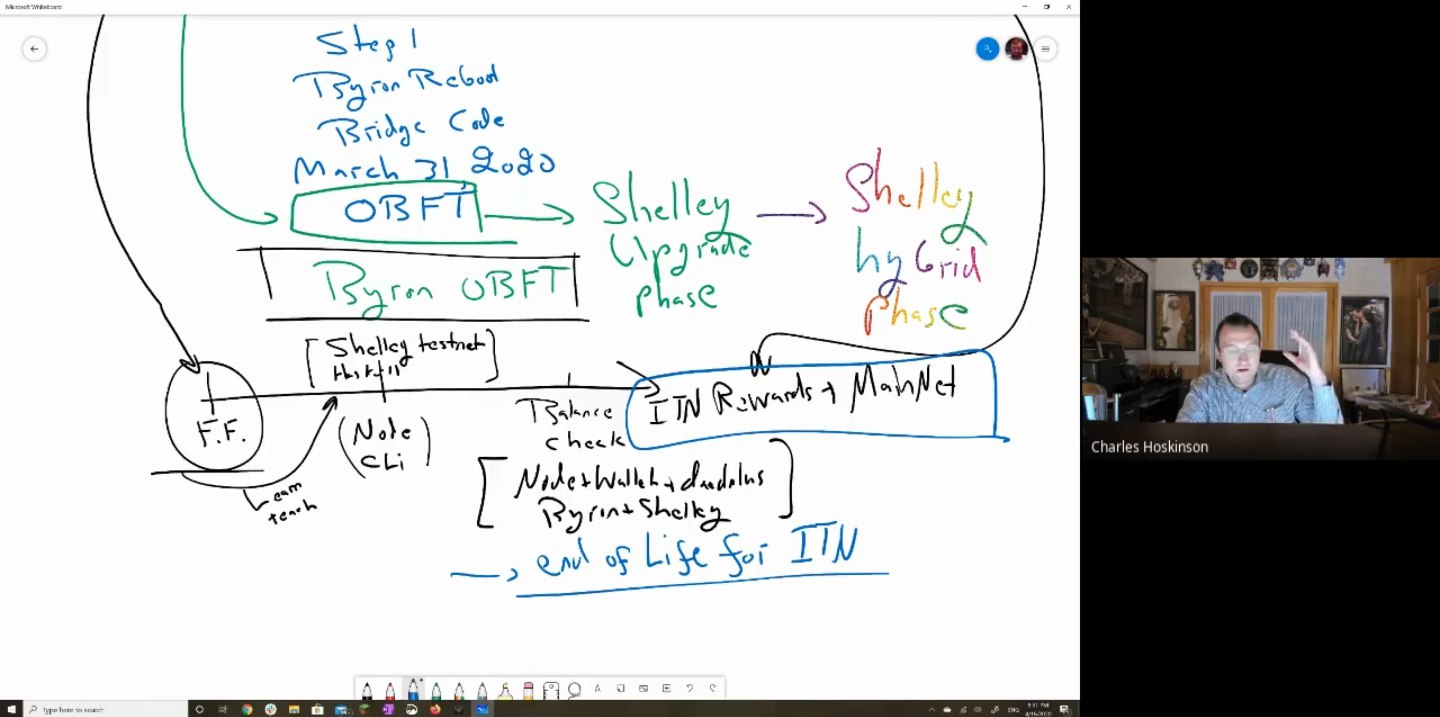 Microsoft Whiteboard
Step 1
Byron Reboot
Bridge Code
March 31 2020
OBFT
Shelley
Upgrade
phase
Shelley
hybrid
phase
Byron OBFT
[Shelley testnet
F.F.
(Node
CLi)
Balance
check
ITN Rewards + MainNet
[Node+Wallet+daedalus
Byron+Shelley]
Learn
teach
→ end of Life for ITN
Charles Hoskinson
Type here to search
ENG